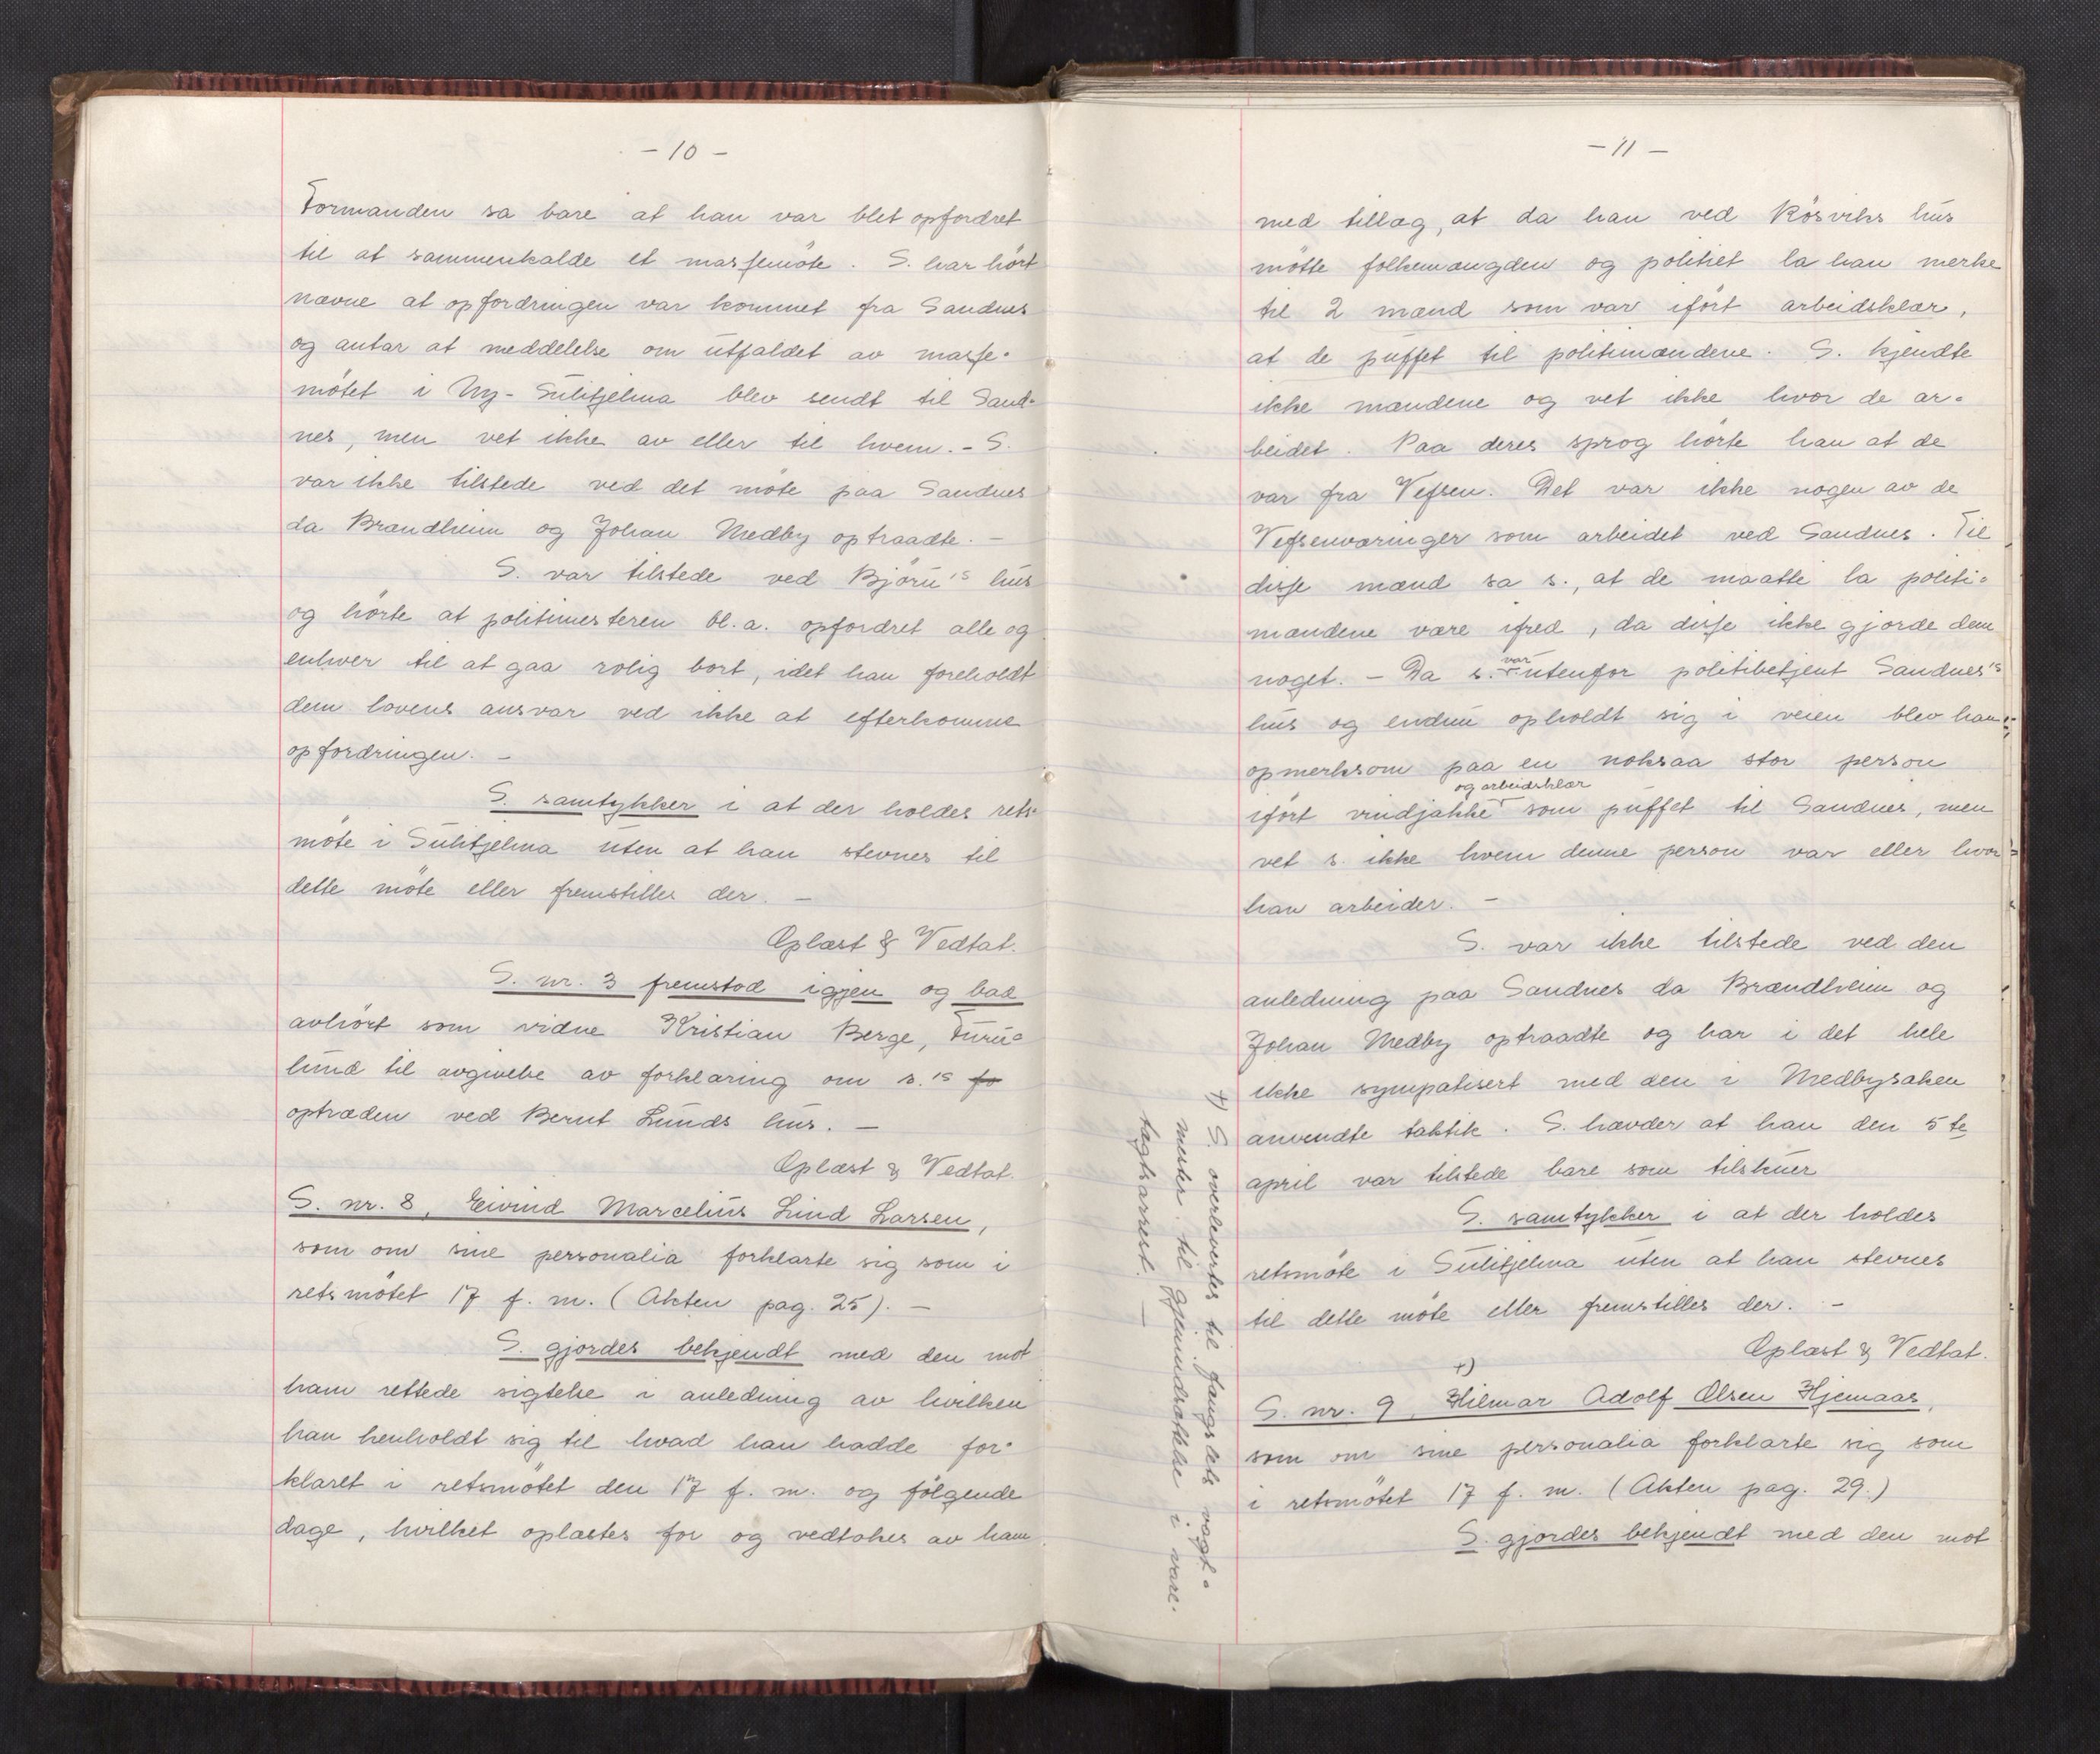 - 10 -
Formanden sa bare at han var blet opfordret
til at sammenkalde et massemöte. S. har hört
nævne at opfordringen var kommet fra Sandnes
og antar at meddelelse om utfaldet av masse-
mötet i Ny-Sulitjelma blev sendt til Sand-
nes, men vet ikke av eller til hvem. - S.
var ikke tilstede ved det möte paa Sandnes
da Brændheim og Johan Medby optraadte. -
S. var tilstede ved Björu's hus
og hörte at politimesteren bl.a. opfordret alle og
enhver til at gaa rolig bort, idet han foreholdt
dem lovens ansvar ved ikke at efterkomme
opfordringen. -
S. samtykker i at der holdes rets-
möte i Sulitjelma uten at han stevnes til
dette möte eller fremstilles der. -
Oplæst & Vedtat.
S. nr. 3 fremstod igjen og bad
avhört som vidne Kristian Berge, Furu-
lund til avgivelse av forklaring om s.'s fo
optræden ved Bernt Lunds hus. -
Oplæst & Vedtat.
S. nr. 8, Eivind Marcelius Lind Larsen,
som om sine personalia forklarte sig som i
retsmötet 17 f. m. (Akten pag. 25). -
S. gjordes bekjendt med den mot
ham rettede sigtelse i anledning av hvilken
han henholdt sig til hvad han hadde for-
klaret i retsmötet den 17 f. m. og fölgende
dage, hvilket oplæstes for og vedtokes av ham
- 11 -
med tillæg, at da han ved Rösviks hus
mötte folkemængden og politiet la han merke
til 2 mænd som var ifört arbeidsklær,
at de puffet til politimændene. S. kjendte
ikke mændene og vet ikke hvor de ar-
beidet. Paa deres sprog hörte han at de
var fra Vefsen. Det var ikke nogen av de
Vefsenværinger som arbeidet ved Sandnes. Til
disse mænd sa s., at de maatte la politi-
mændene være ifred, da disse ikke gjorde dem
noget. - Da s. var utenfor politibetjent Sandnes's
hus og endnu opholdt sig i veien blev han
opmerksom paa en noksaa stor person
og arbeidsklær
ifört vindjakke som puffet til Sandnes, men
vet s. ikke hvem denne person var eller hvor
han arbeider. -
S. var ikke tilstede ved den
anledning paa Sandnes da Brændheim og
Johan Medby optraadte og har i det hele
ikke sympatisert med den i Medbysaken
anvendte taktik. S. hævder at han den 5te
april var tilstede bare som tilskuer
S. samtykker i at der holdes
retsmöte i Sulitjelma uten at han stevnes
til dette möte eller fremstilles der. -
Oplæst & Vedtat.
+)
S. nr. 9, Hilmar Adolf Olsen Hjemaas,
som om sine personalia forklarte sig som
i retsmötet 17 f. m. (Akten pag. 29.)
S. gjordes bekjendt med den mot
+) S. overlevertes til fængslets vagt-
mester til gjenindsættelse i vare-
tægtsarrest. -